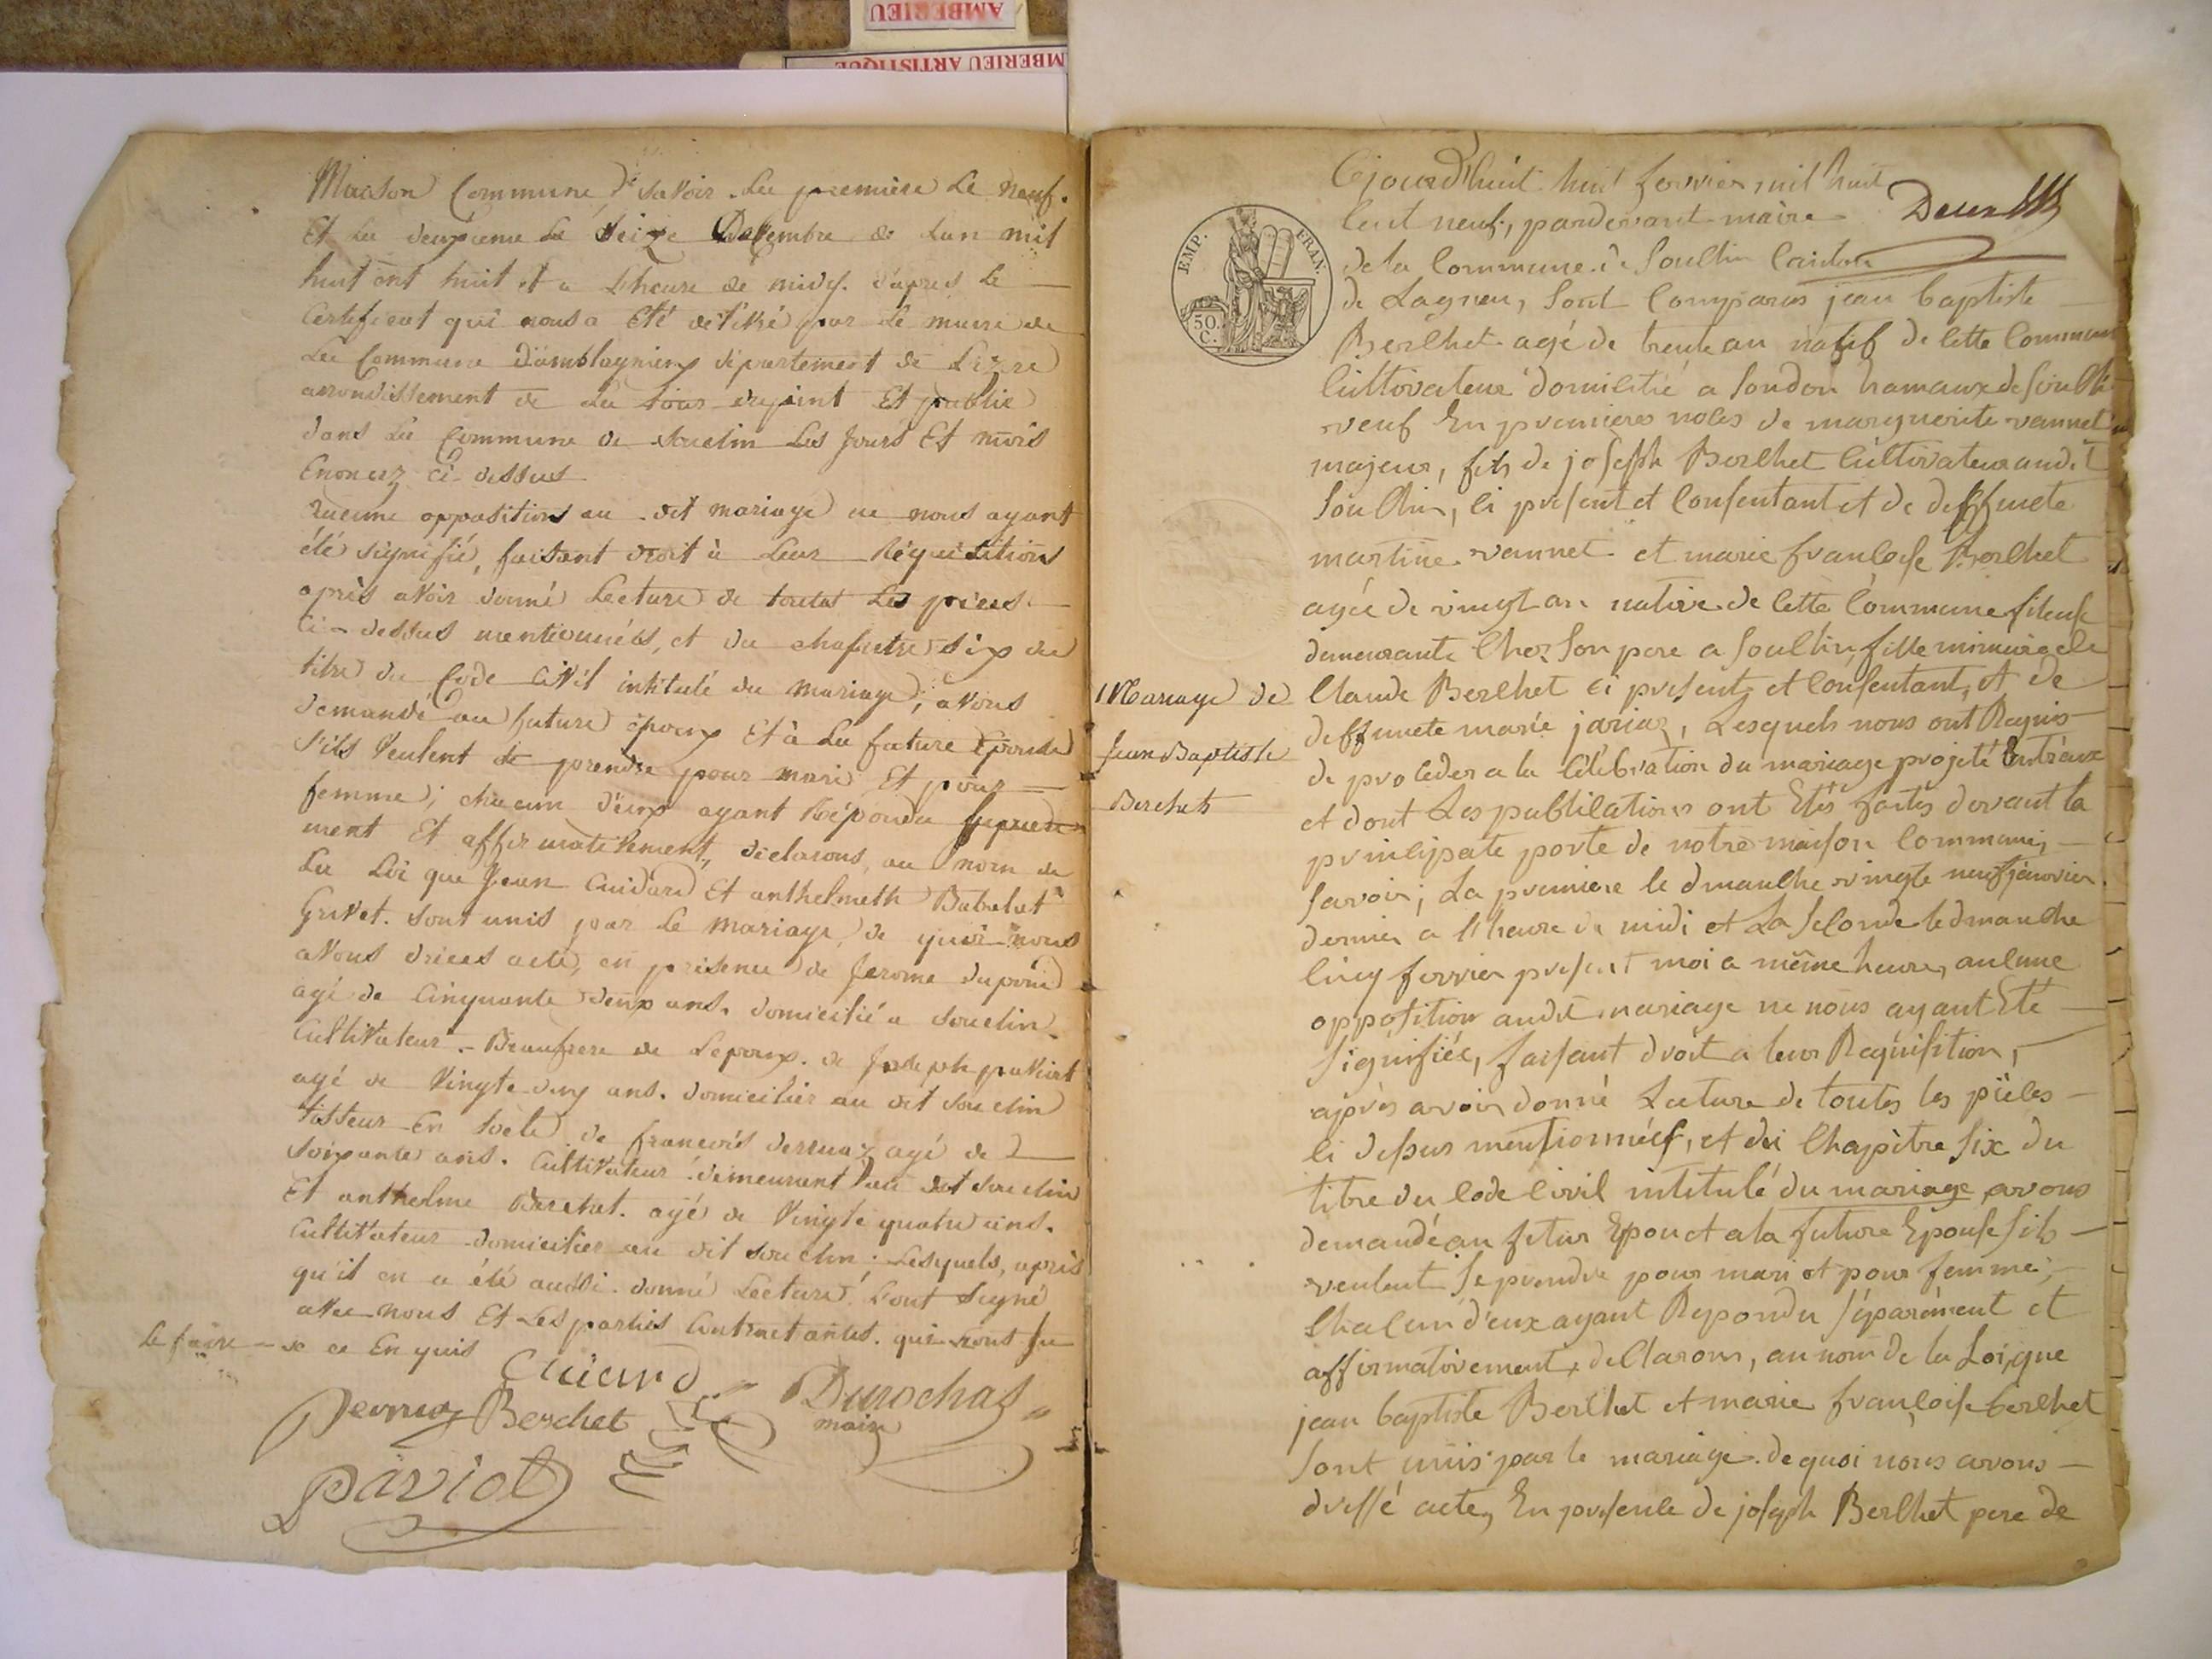 AMBERIEU
MBERIEU ARTISTIQUE
Maison Commune, Savoir. La première Le neuf.
Et La deuxieme Le seize Decembre de Lan mil
huit cent huit et a Lheure de midy. d'apres Le
Certeficat qui nous a Eté délivré par Le maire de
La Commune d'amblagnieux département de Lizere
arrondissement de La tour dupint Et publié
dans La Commune de souclin Les Jours Et mois
Enoncez ci-dessus
Aucune oppositions au dit mariage ne nous ayant
été signifié, faisant droit à Leur Réquisitions
après avoir donné Lecture de toutes Les pièces
Ci-dessus mentionnées, et du chapitre six du
titre du Code Civil intitulé du mariage, avons
demandé au future époux Et à La future Epouse
s'ils Veulent se prendre pour mari Et pour
femme; chacun d'eux ayant Répondu
ment Et affirmativement, déclarons au nom de
La Loi que Jean Cuidard Et anthelmeth Babolat
Grivet. sont unis par Le mariage, de quoi nous
avons acte, en présence de Jerome dupond
agé de Cinquante deux ans. domicilié a souclin
Cultivateur. Beaufrere de Lepoux. de Joseph paviot
agé de Vingte ans. domicilier au dit souclin
tisseur En de francois derruaz agé de
soixante ans. Cultivateur demeurent au dit souclin
Et anthelme Berchet. agé de Vingte quatre ans.
Cultivateur domicilier au dit souclin; Lesquels, après
qu'il en a été aussi donné Lecture, L'ont Signé
avec nous Et Les parties Contractantes. qui sont su
Le faire de ce Enquis
Cuiard
Derruaz Berchet Durochat
maire
Paviot
Cejourd'huit huit fevrier mil huit
Cent neuf, pardevant maire
de la Commune de Souclin Canton
de Lagneu, Sont Comparus jean baptiste
Berchet agé de trente an natif de Cette Commune
Cultivateur domicilié a Soudon hamaux de Souclin
veuf En premieres noces de marguerite vannet
majeur, fils de joseph Berchet Cultivateur audit
Souclin, ci présent et Consentant et de deffuncte
martine vannet et marie francoise Berchet
agée de vingt an native de Cette Commune fileuse
demeurante Chez Son pere a Souclin, fille mineure de
Claude Berchet ci present et Consentant, et de
deffuncte marie jariaz, Lesquels nous ont Requis
de proceder a la Célébration du mariage projeté Entr'eux
et dont Les publications ont Etés faites devant la
principale porte de notre maison Commune,
Savoir; La premiere le dmanche vingte neuf janvier
dernier a l'heure de midi et La Seconde le dmanche
Cinq fevrier present moi a même heure, aucune
opposition audit mariage ne nous ayant Eté
Signifiée, faisant droit a leur Requisition,
après avoir donné Lecture de toutes les pièces
ci dessus mentionnées, et du Chapitre Six du
titre du Code Civil intitulé du mariage avons
demandé au futur Epou et a la future Epouse Sils
veulent Se prendre pour mari et pour femme,
Chacun d'eux ayant Repondu Séparément et
affirmativement, declarons, au nom de la Loi, que
jean baptiste Berchet et marie françoise berchet
Sont unis par le mariage. de quoi nous avons
dressé acte, En presence de joseph Berchet pere de
Mariage de
Jean Baptiste
Berchet
EMP. FRAN.
50. C.